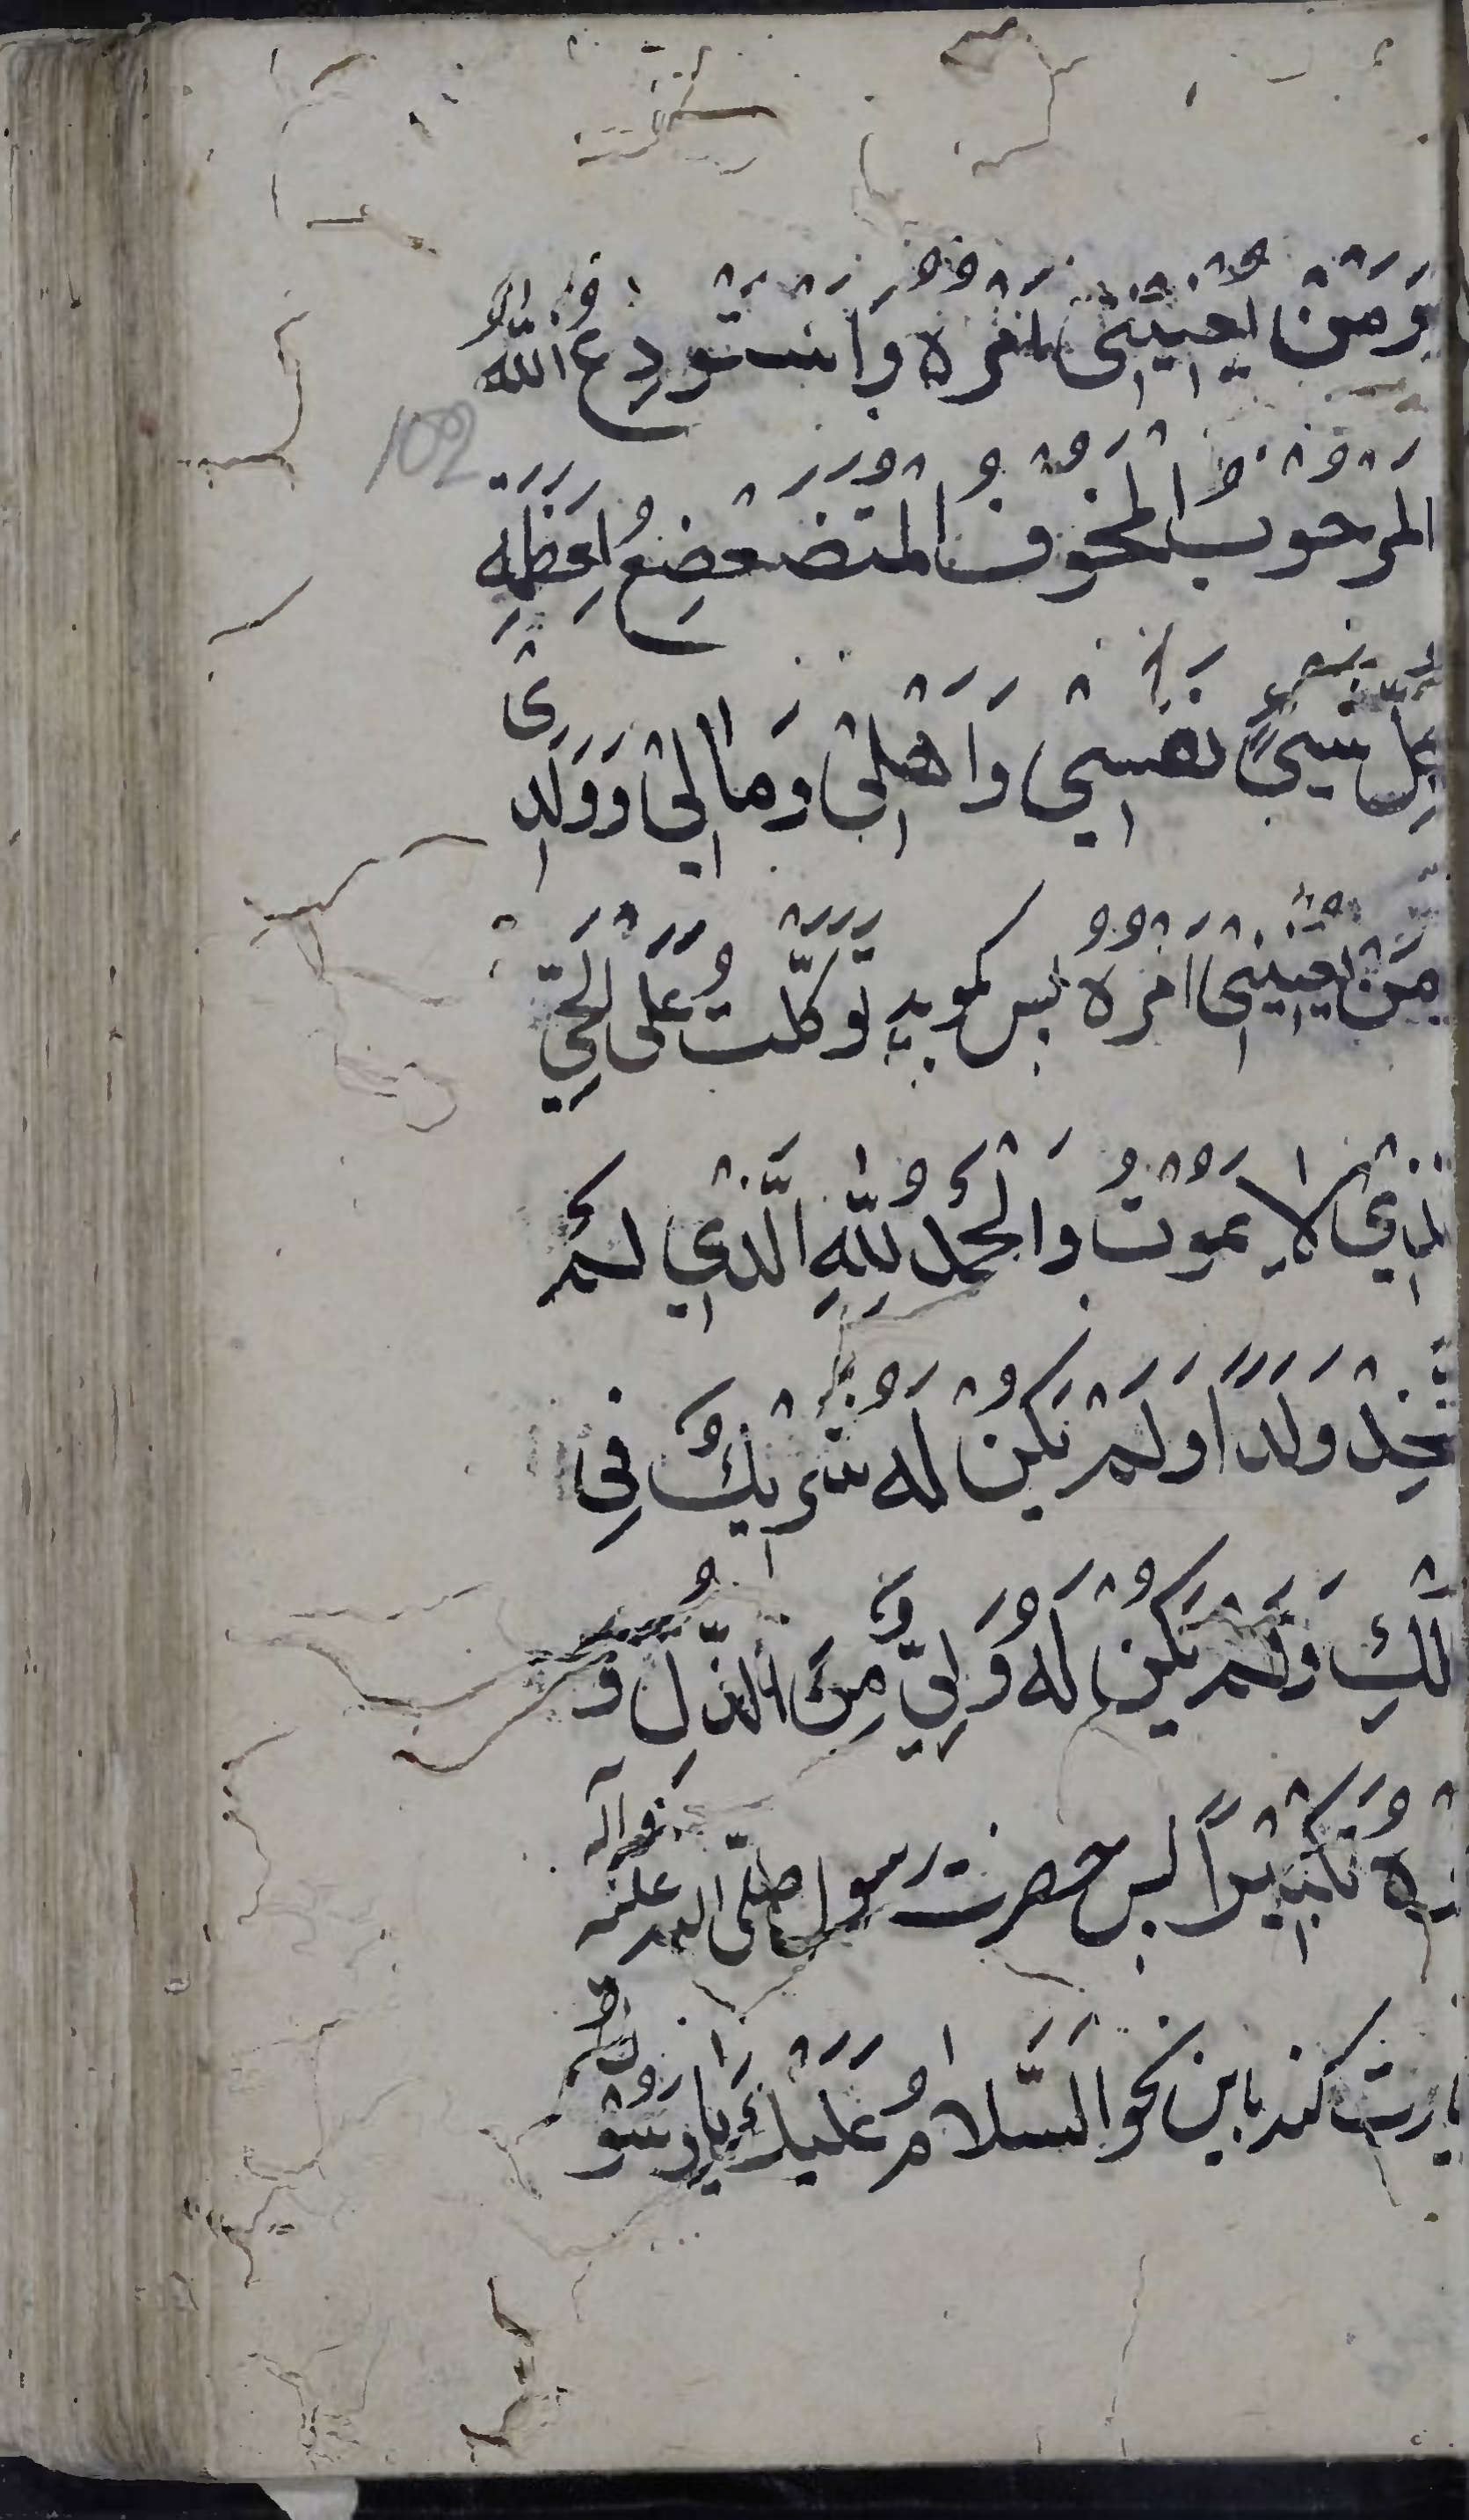 وَمَنْ یَعْنِیْنِیْ اَمْرُهُ وَاَسْتَوْدِعُ اللّٰهَ
102
المَرْهُوْبَ الْمَخُوْفَ الْمُتَضَعْضِعُ لِعَظَمَتِهِ
كُلُّ شَیْءٍ نَفْسِیْ وَاَهْلِیْ وَمَالِیْ وَوَلَدِیْ
مَنْ یَعْنِیْنِیْ اَمْرُهُ پس بگوید تَوَكَّلْتُ عَلَی الْحَیِّ
لَّذِیْ لَا یَمُوْتُ وَالْحَمْدُ لِلّٰهِ الَّذِیْ لَمْ
یَتَّخِذْ وَلَدًا وَلَمْ یَكُنْ لَهُ شَرِیْكٌ فِی
لْكِ وَلَمْ یَكُنْ لَهُ وَلِیٌّ مِنَ الذُّلِّ وَ
رْهُ تَكْبِیْرًا پس حضرت رسول صلّی الله علیه وآله
یارت کند باین نحو اَلسَّلَامُ عَلَیْكَ یَا رَسُوْلَ اللّٰهِ